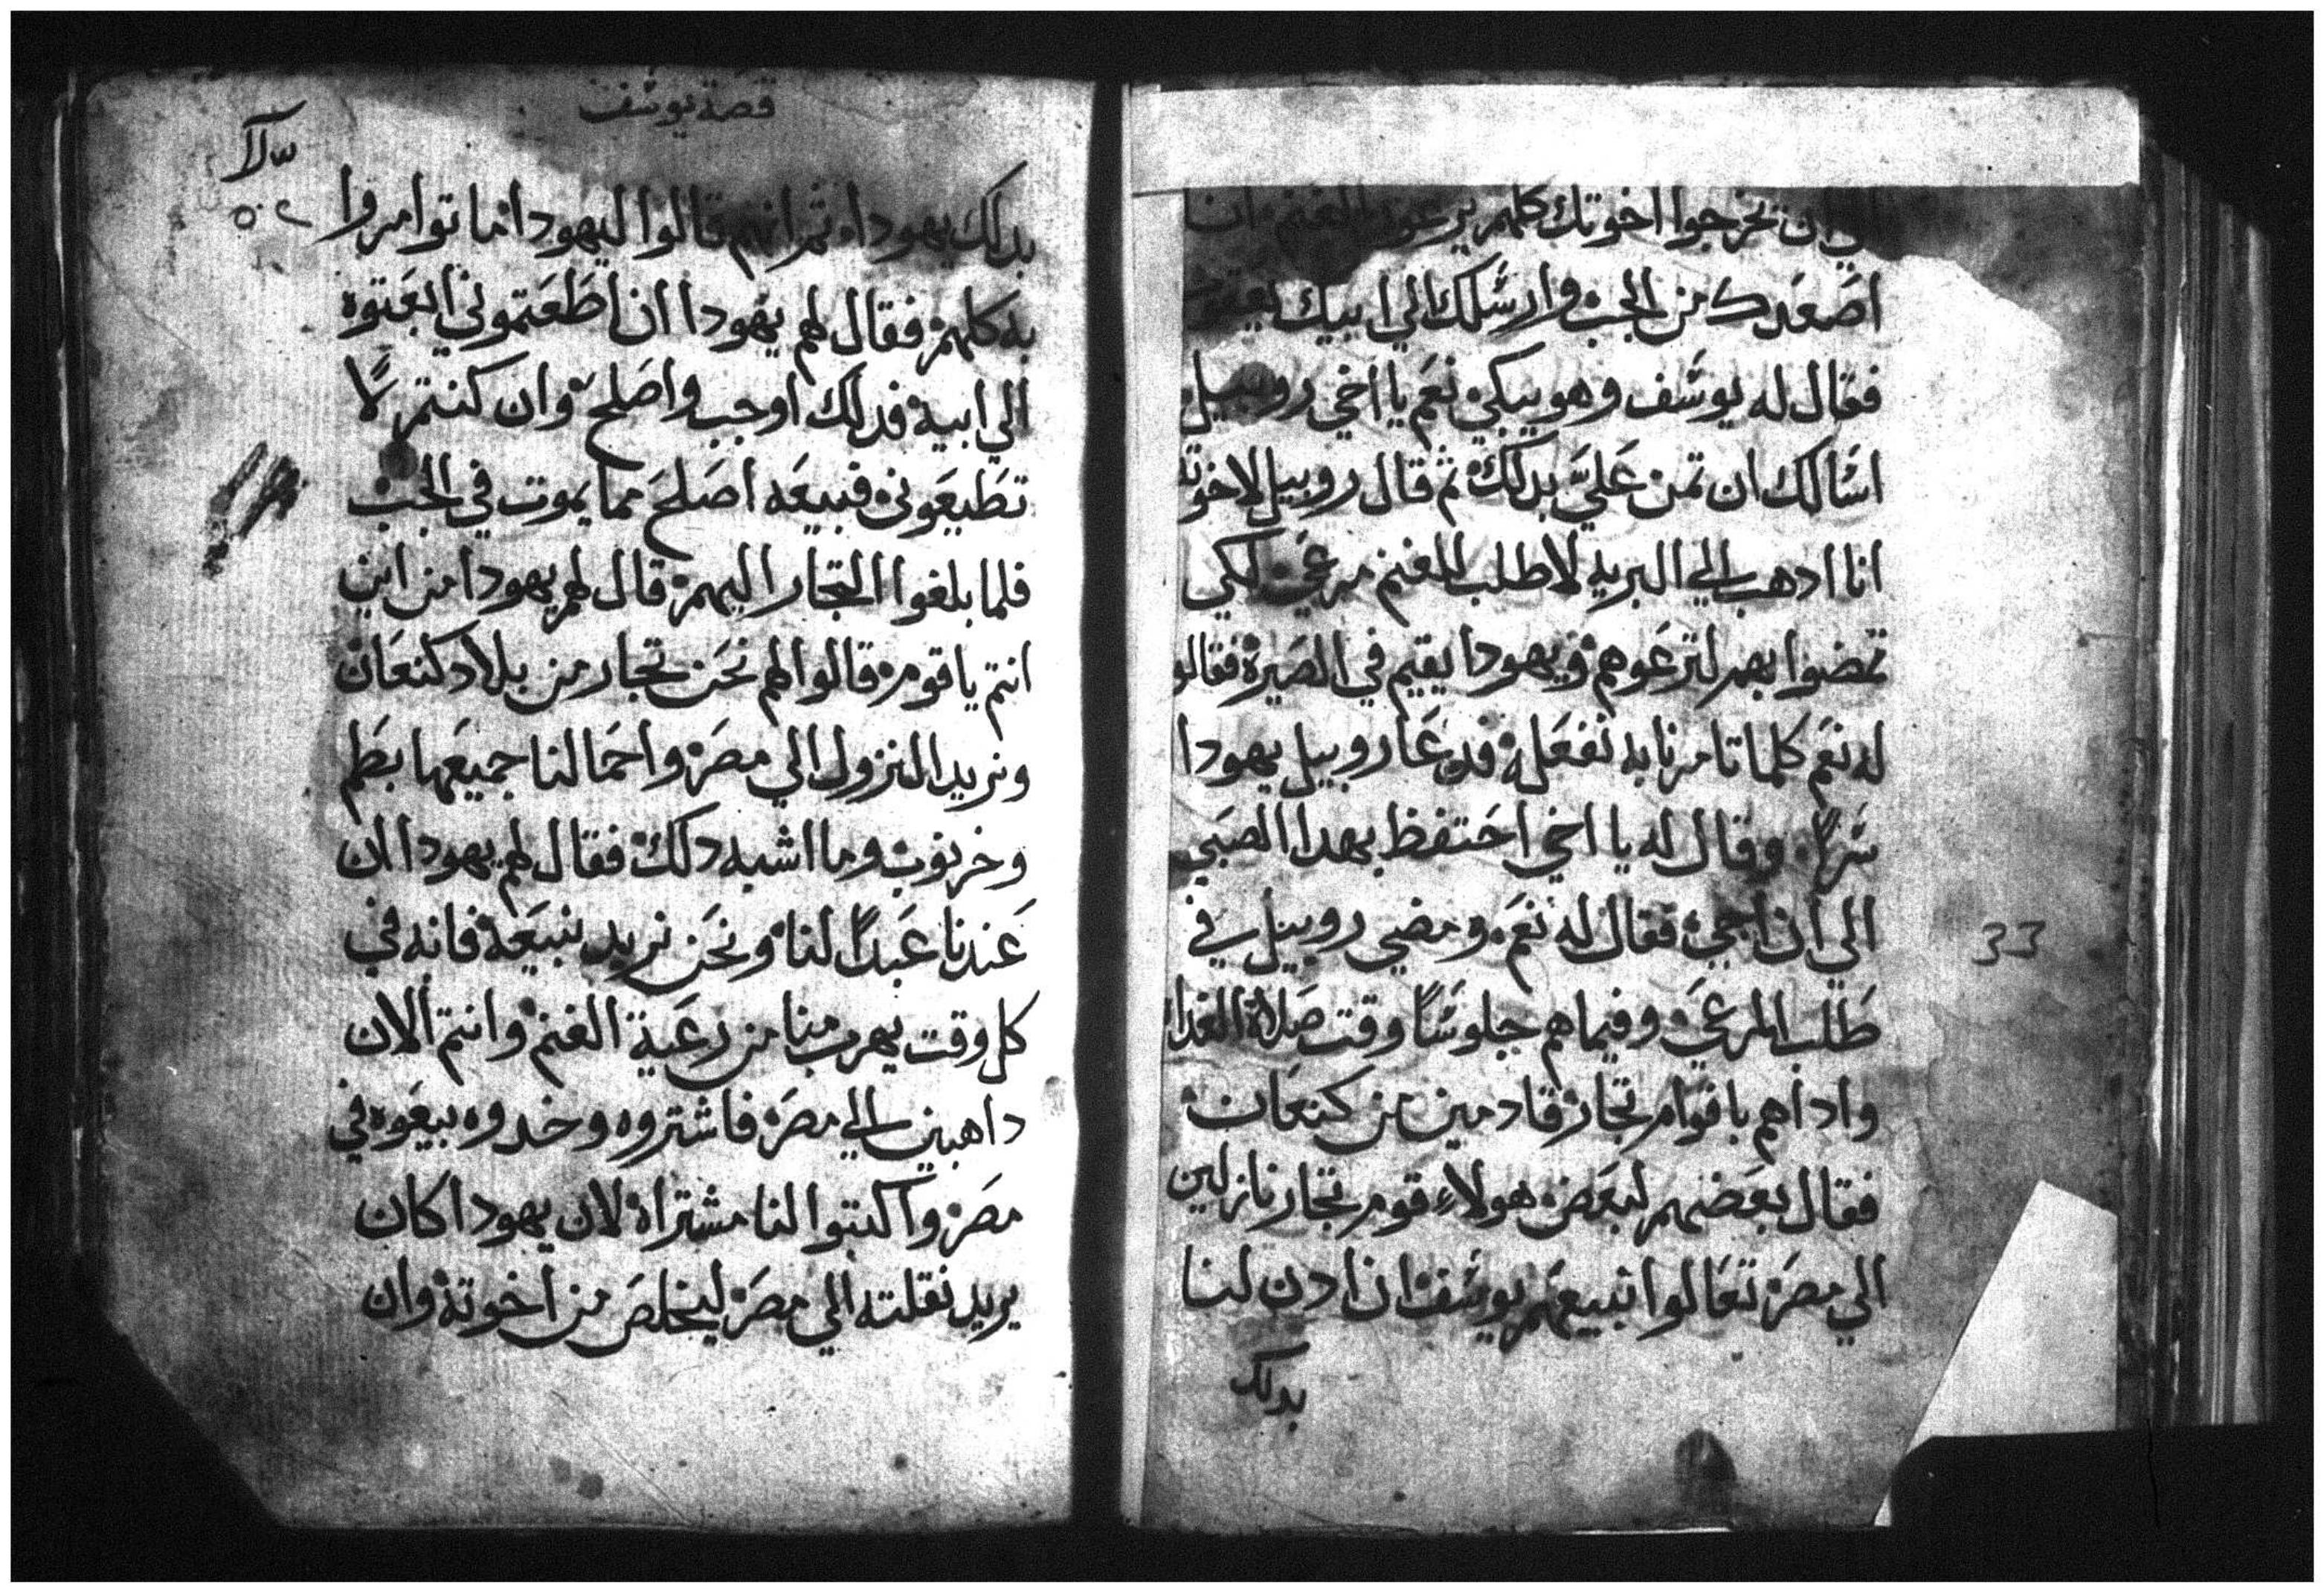 ان تخرجوا اخوتك كلهم يرعوا الغنم انا
اصعدك من الجب وارسلك الي ابيك يعقوب
فقال له يوسف وهو يبكي نعم يا اخي روبيل
اسالك ان تمن علي بدلك ثم قال روبيل لاخوته
انا ادهب الي البريه لاطلب للغنم مرعي لكي
تمضوا بهم لترعوهم ويهودا يقيم في الصيرة فقالو
له نعم كلما تامرنا به نفعله فدعا روبيل يهودا
سرا وقال له يا اخي احتفظ بهدا الصبي
الي ان اجي فقال له نعم ومضي روبيل في
طلب المرعي وفيما هم جلوسا وقت صلاة الغداة
واداهم باقوام تجار قادمين من كنعان
فقال بعضهم لبعض هولاء قوم تجار نازلين
الي مصر تعالوا نبيعهم يوسف ان ادن لنا
بدلك
33
قصة يوسف
٥٠٢
بدلك يهودا ثم انهم قالوا ليهودا ما توامروا
به كلهم فقال لهم يهودا ان اطعتموني ابعتوه
الي ابيه فدلك اوجب واصلح وان كنتم لا
تطيعوني فبيعه اصلح مما يموت في الجب
فلما بلغوا التجار اليهم قال لهم يهودا من اين
انتم يا قوم قالوا لهم نحن تجار من بلاد كنعان
ونريد النزول الي مصر واحمالنا جميعها بطم
وخرنوب وما اشبه دلك فقال لهم يهودا ان
عندنا عبدا لنا ونحن نريد نبيعه فانه في
كل وقت يهرب منا من رعية الغنم وانتم الان
داهبين الي مصر فاشتروه وخدوه بيعوه في
مصر واكتبوا لنا مشتراه لان يهودا كان
يريد نقلته الي مصر ليخلص من اخوته وان